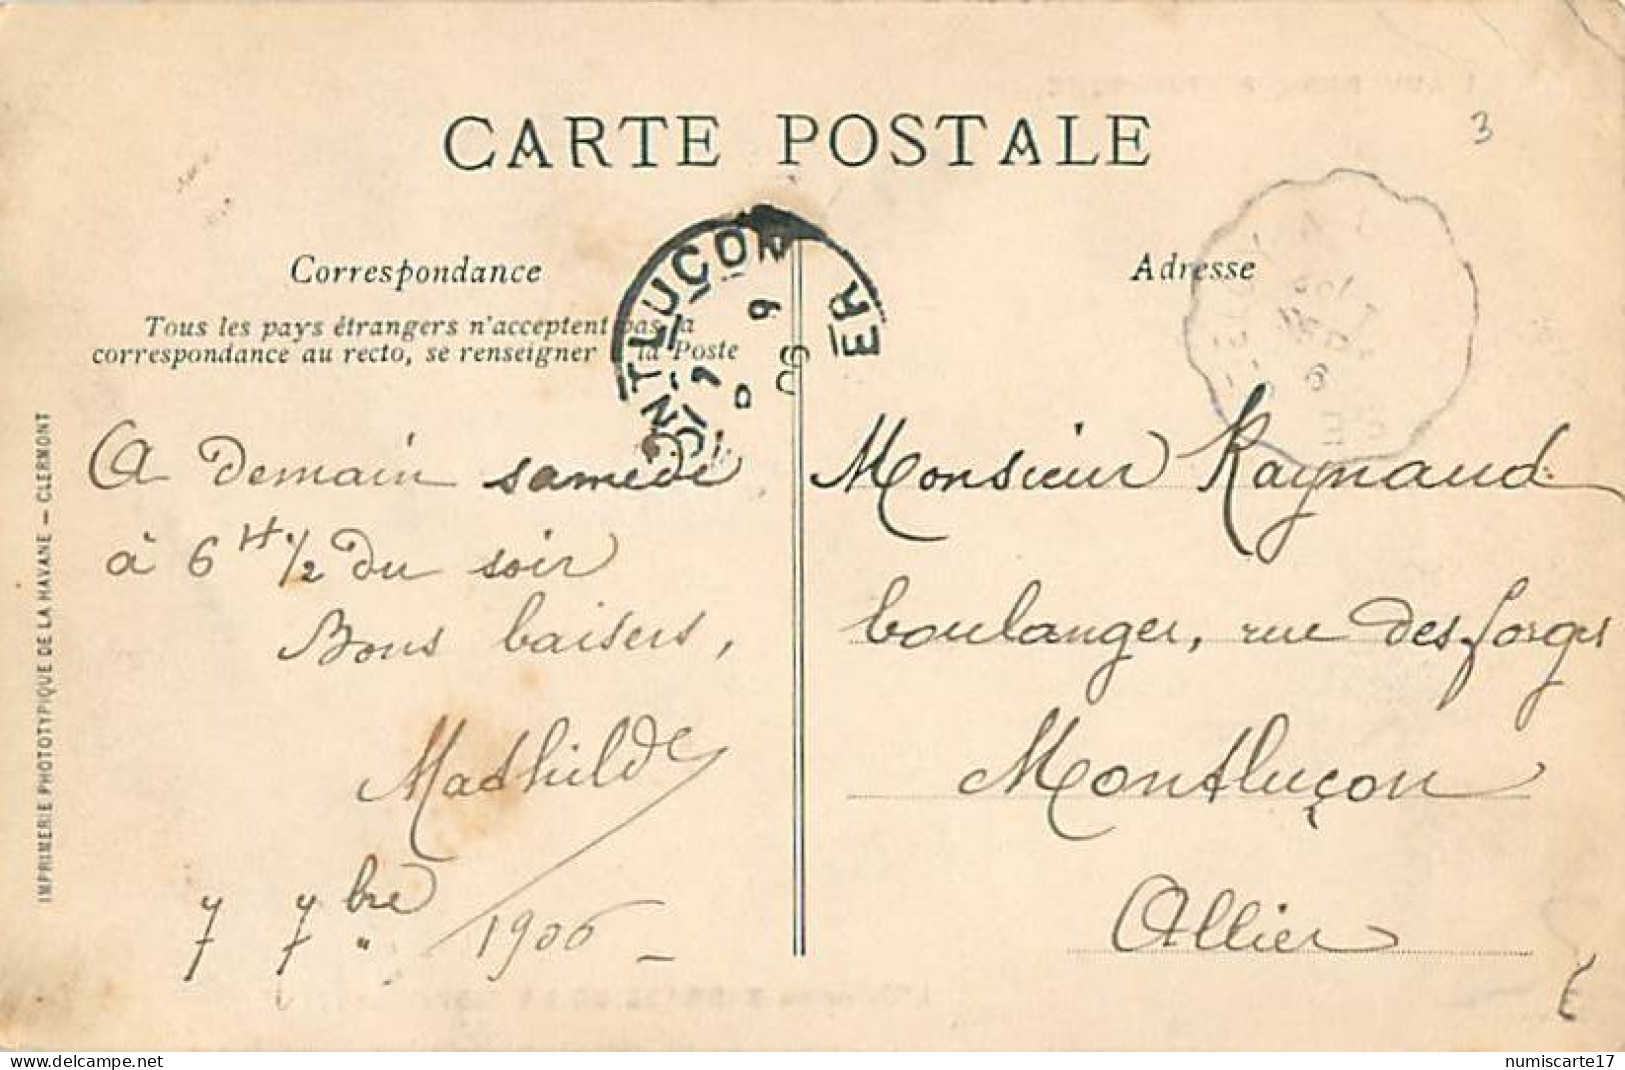 CARTE POSTALE
3
Correspondance
Adresse
Tous les pays étrangers n'acceptent pas la
correspondance au recto, se renseigner à la Poste
MONTLUÇON
ER
A demain samedi
à 6 H 1/2 du soir
Bons baisers,
Mathilde
7 7bre 1906
Monsieur Raynaud
boulanger, rue des forges
Montluçon
Allier
IMPRIMERIE PHOTOTYPIQUE DE LA HAVANE — CLERMONT
numiscarte17